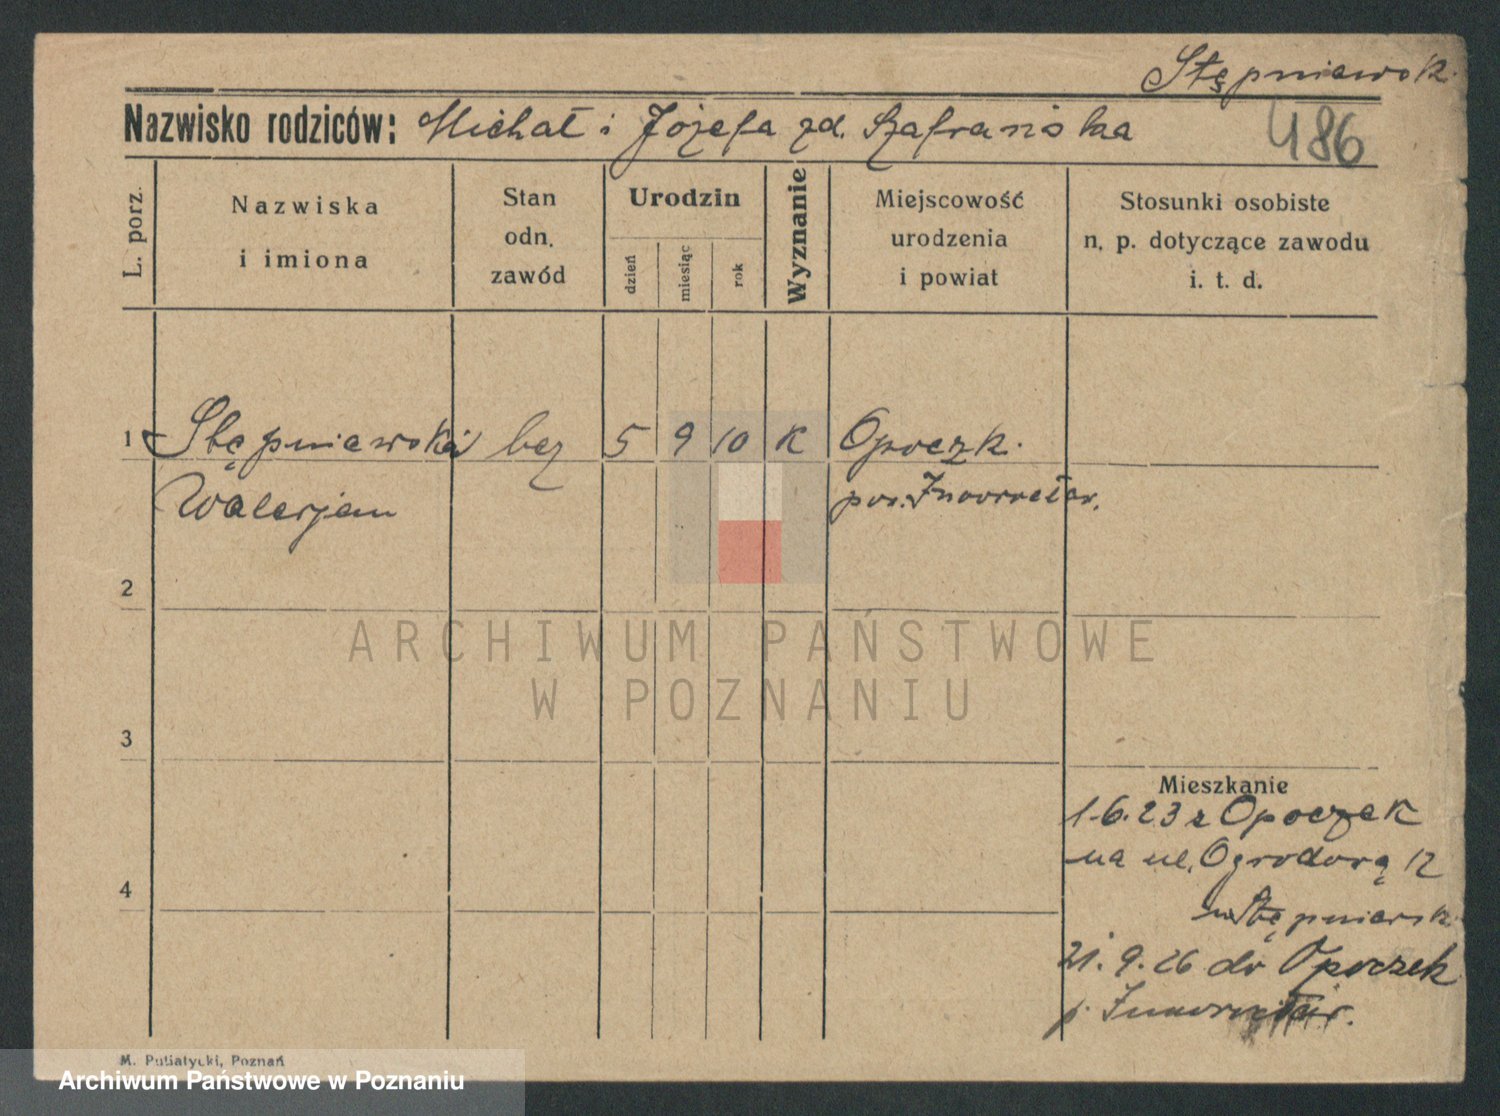 Stępniewsk.
Nazwisko rodziców: Michał i Józefa zd. Szafrańska
486
L. porz.
Nazwiska
i imiona
Stan
odn.
zawód
Urodzin
dzień
miesiąc
rok
Wyznanie
Miejscowość
urodzenia
i powiat
Stosunki osobiste
n. p. dotyczące zawodu
i. t. d.
1 Stępniewski bez 5 9 10 K Opoczk.
Walerjan pow. Inowrocław.
2
ARCHIWUM PAŃSTWOWE
W POZNANIU
3
Mieszkanie
1.6.23 z Opoczek
na ul. Ogrodową 12
4
Stępniewsk.
21.9.26 do Opoczek
p. Inowrocław.
M. Putiatycki, Poznań
Archiwum Państwowe w Poznaniu